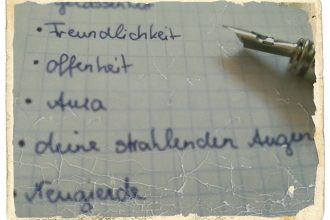 • Freundlichkeit
• Offenheit
• Aura
• deine strahlenden Augen
• Neugierde